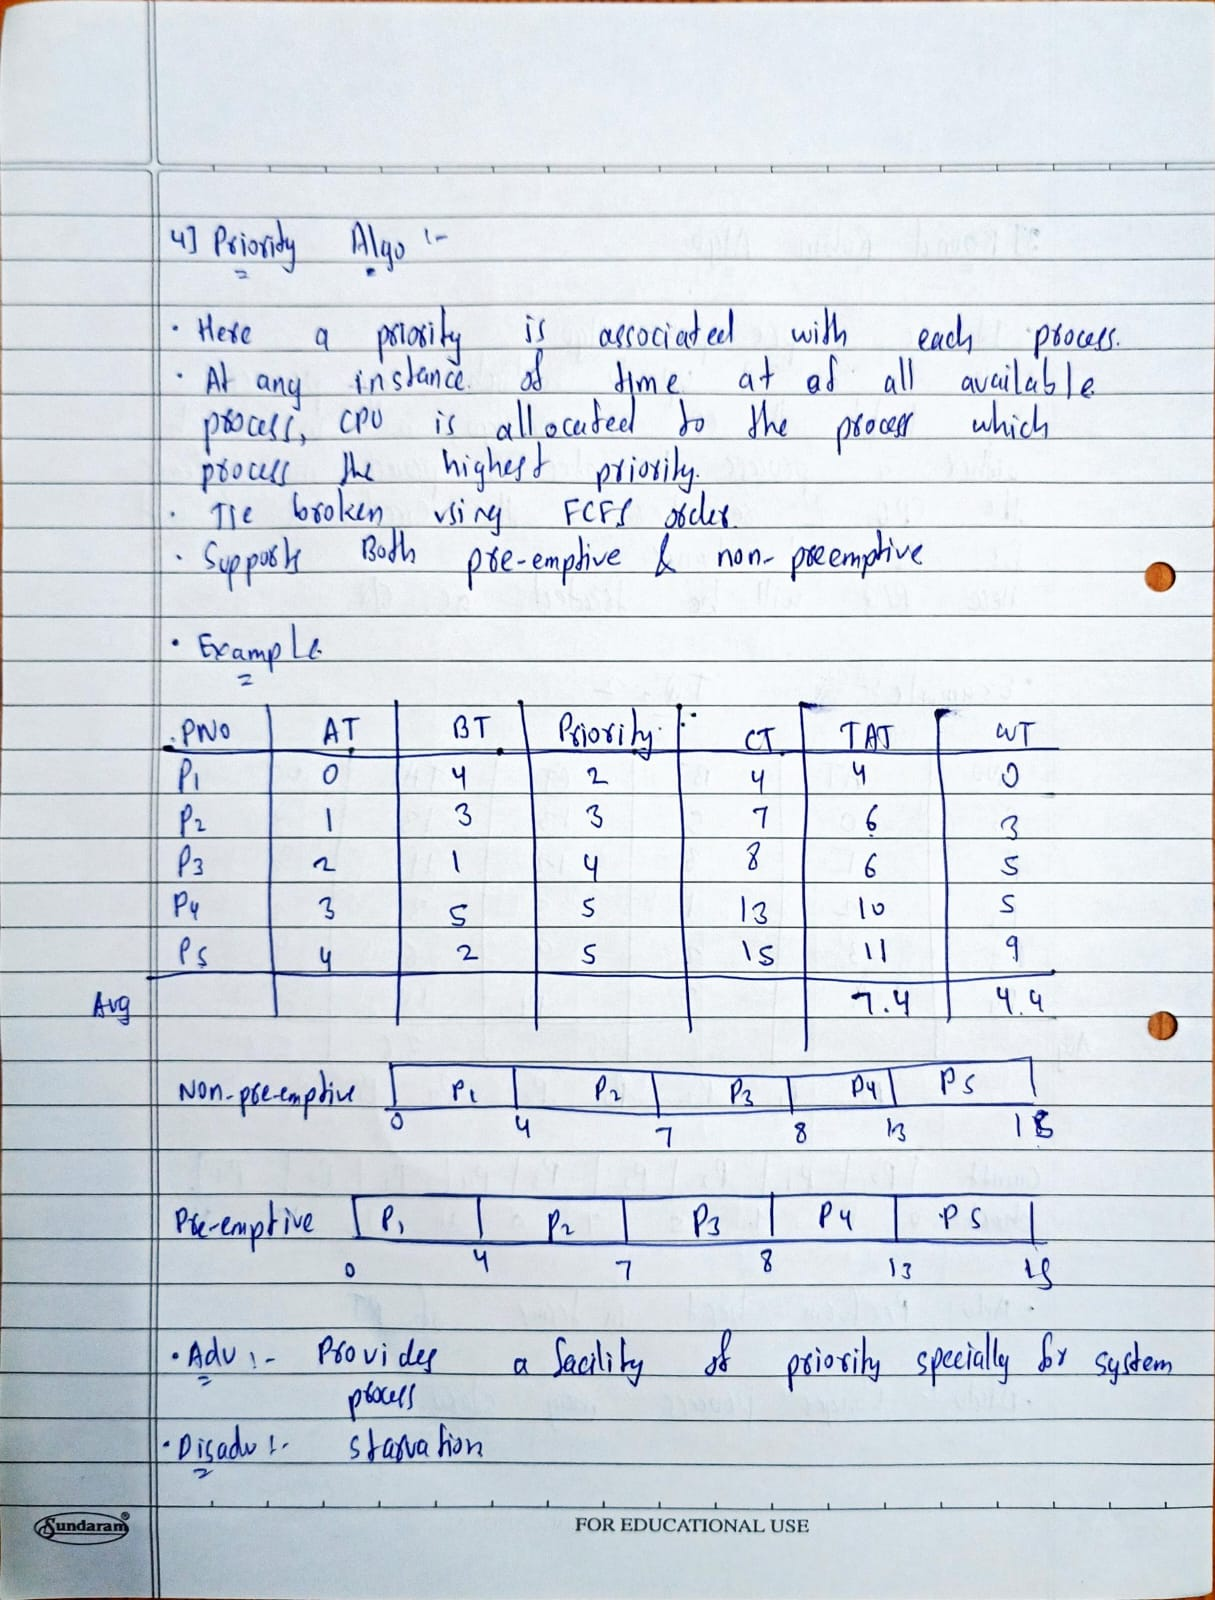 4] Priority Algo :-
• Here a priority is associated with each process.
• At any instance of time at of all available
process, CPU is allocated to the process which
process the highest priority.
• Tie broken using FCFS order.
• Supports Both pre-emptive & non-preemptive
• Example
PNO AT BT Priority CT TAT WT
P1 0 4 2 4 4 0
P2 1 3 3 7 6 3
P3 2 1 4 8 6 5
P4 3 5 5 13 10 5
P5 4 2 5 15 11 9
Avg 7.4 4.4
Non-pre-emptive P1 P2 P3 P4 P5
0 4 7 8 13 15
Pre-emptive P1 P2 P3 P4 P5
0 4 7 8 13 15
• Adv :- Provides a facility of priority specially for system
process
• Disadv :- starvation
Sundaram®
FOR EDUCATIONAL USE